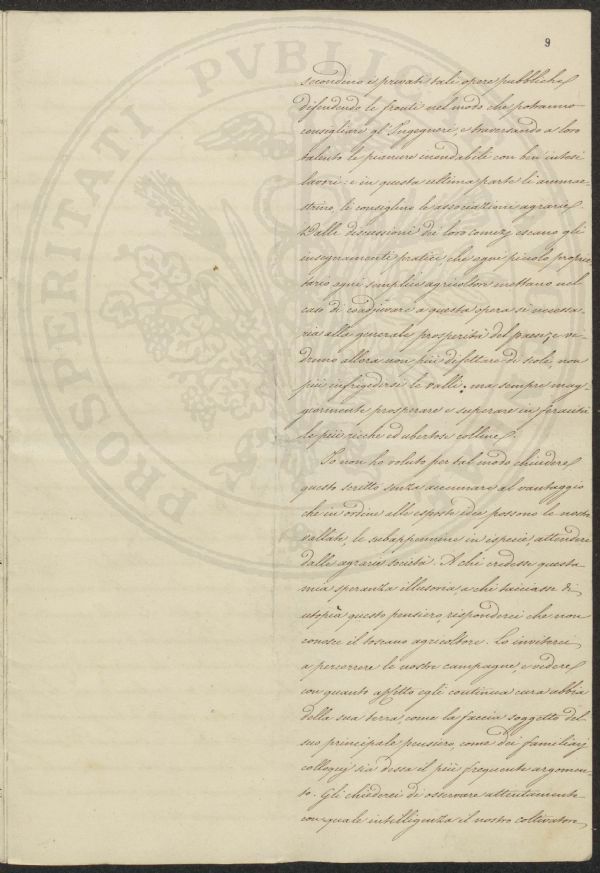 9
secondino i privati tali opere pubbliche
difendendo le fronti nel modo che potranno
consigliare gl'Ingegneri, e traversando a loro
talento le pianure inondabili con ben intesi
lavori: e in questa ultima parte li ammae-
strino, li consiglino le associazioni agrarie.
Dalle discussioni dei loro comizj escano gli
insegnamenti pratici che ogni piccolo proprie-
tario ogni semplice agricoltore mettano nel
caso di coadiuvare a questa opera sì necessa-
ria alla generale prosperità del paese; e ve-
dremo allora non più difettare di scolo, non
più infrigidirsi le valli; ma sempre mag-
giormente prosperare e superare in
le più ricche ed ubertose colline.
Io non ho voluto per tal modo chiudere
questo scritto senza accennare al vantaggio
che in ordine alle esposte idee possono le nostre
vallate, le subappennine in specie, attendere
dalle agrarie società. A chi credesse questa
mia speranza illusoria, a chi tacciasse di
utopia questo pensiero, risponderei che non
conosce il toscano agricoltore. Lo inviterei
a percorrere le nostre campagne, e vedere
con quanto affetto egli continua cura abbia
della sua terra, come la faccia soggetto del
suo principale pensiero, come dei familiarj
colloquj sia dessa il più frequente argomen-
to. Gli chiederei di osservare attentamente
con quale intelligenza il nostro coltivatore
PROSPERITATI PVBLICAE